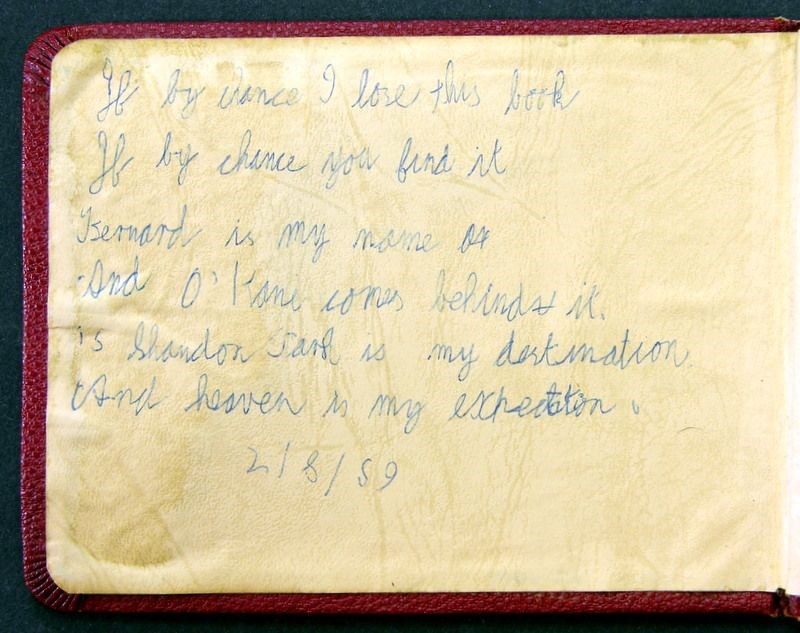 If by chance I lose this book
If by chance you find it
Bernard is my name
And O'Kane comes behind it.
15 Shandon Park is my destination.
And heaven is my expectation.
2/8/59